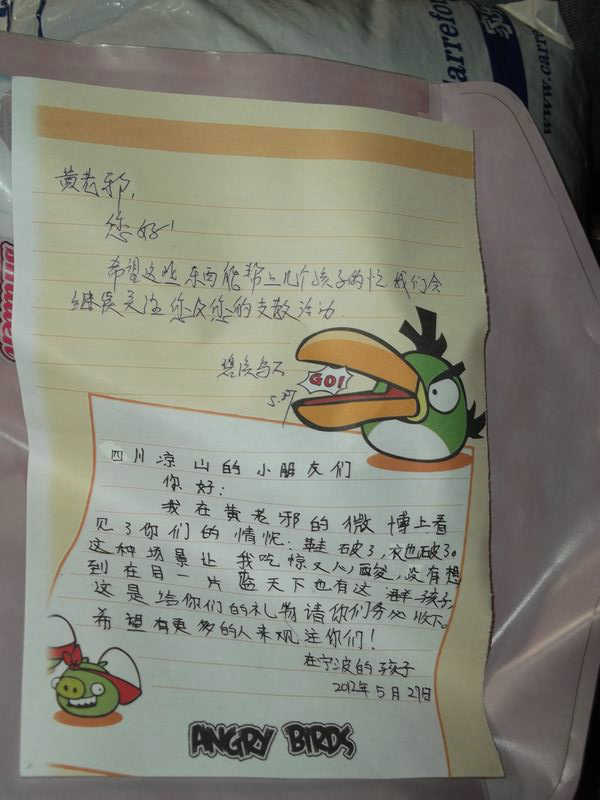 Carrefour
www.carre
黄老邪,
您好!
希望这些东西能帮上几个孩子的忙 我们会
继续关注您及您的支教活动
5.27
GO!
四川凉山的小朋友们
你好:
我在黄老邪的微博上看
见了你们的情怳:鞋破了,衣也破了。
这种场景让我吃惊又心酸,没有想
到在目一片蓝天下也有这 孩子,
这是给你们的礼物请你们务必收下。
希望有更多的人来观注你们!
在宁波的孩子
2012年5月27日
ANGRY BIRDS